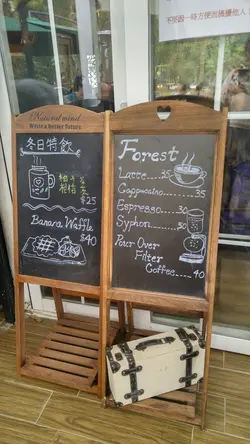 Natural wind
Write a better future
冬日特飲
$25
Banana Waffle
$40
Forest
Latte.......35
Cappoccino.....35
Espresso.....30
Syphon.....30
Pour Over
Filter
Coffee.....40